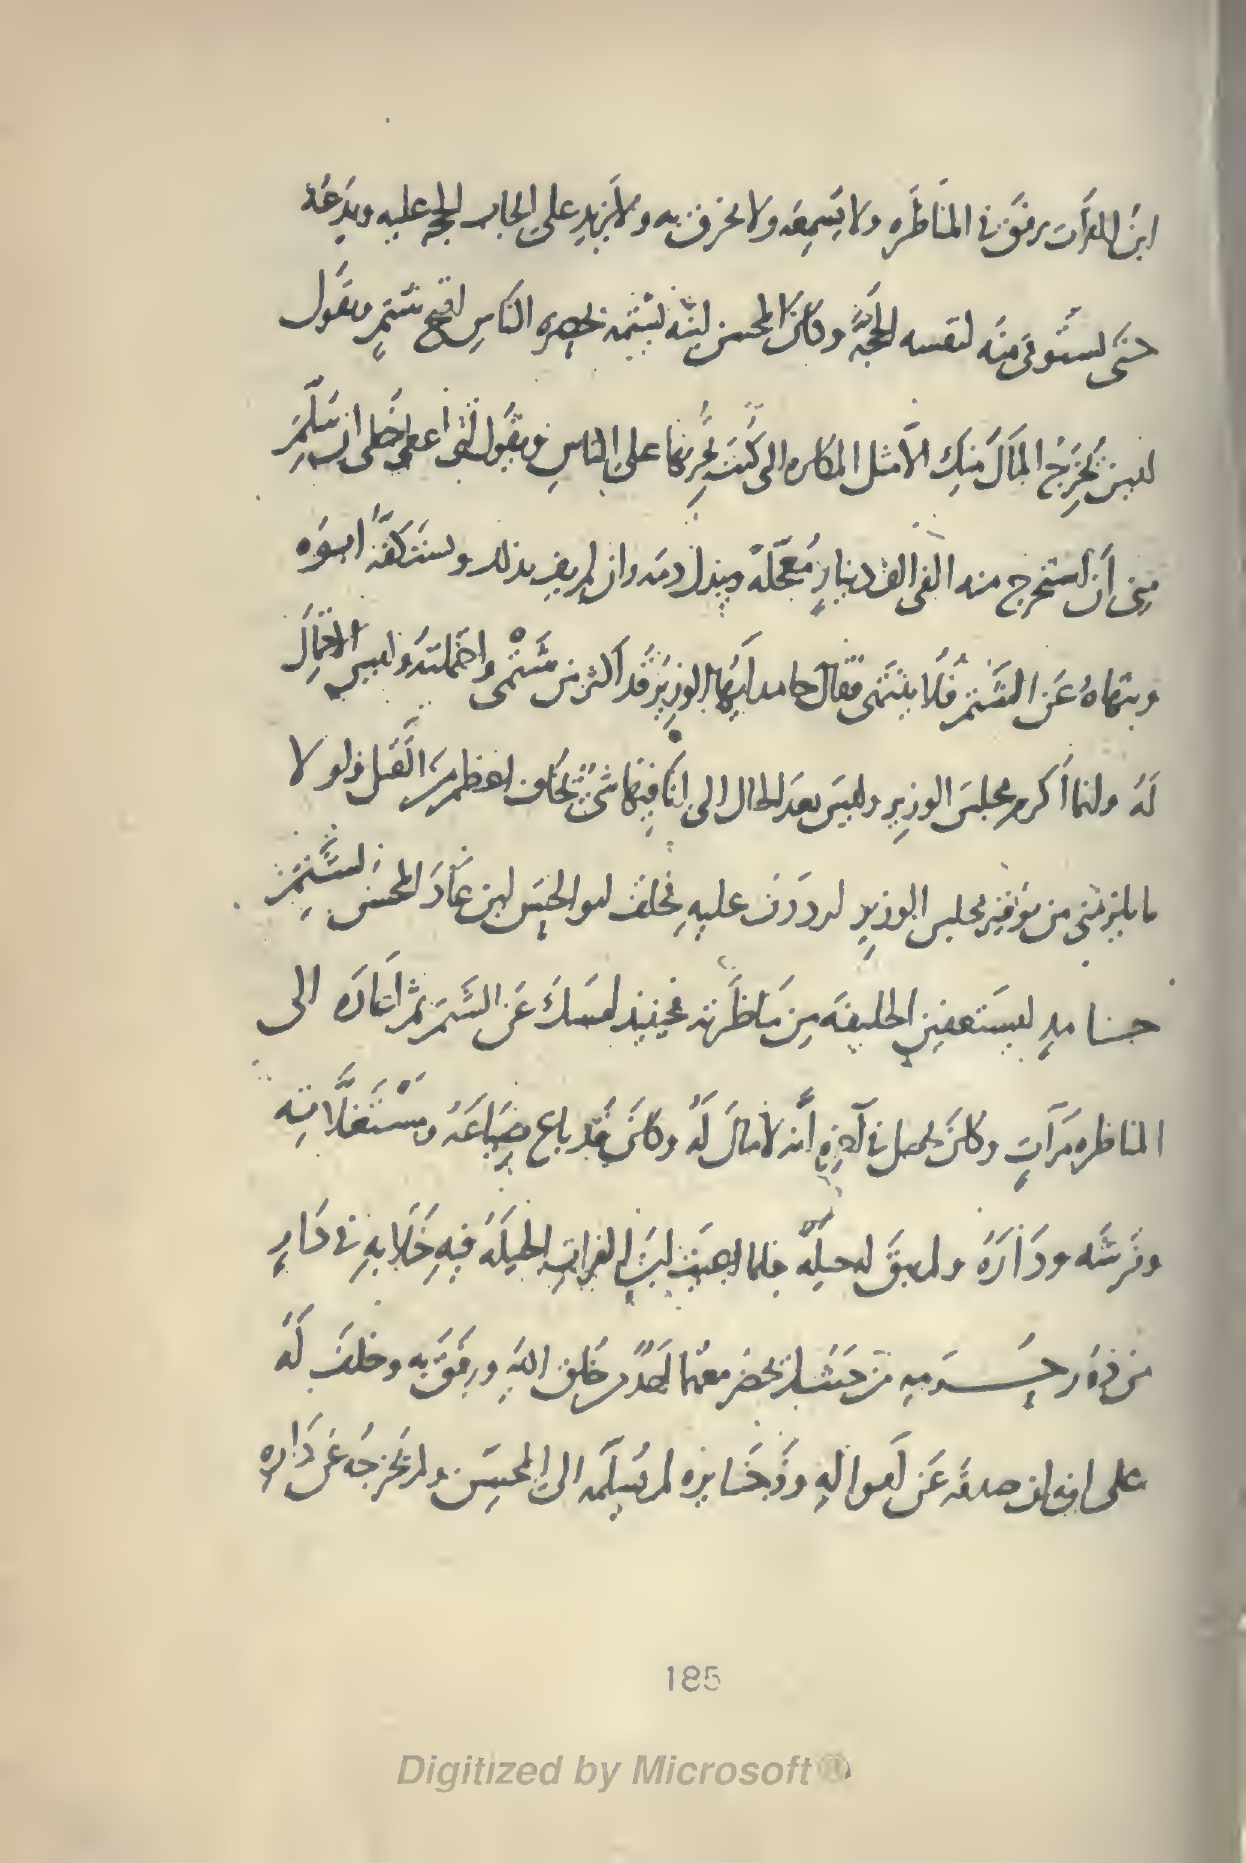 ابن الفرات يرفق في المناظره ولا يسمعه ولا يخرق به ولا يزيد على ايجاب الحجج عليه ويدعه
حتى يستوفى منه لنفسه الحجة وكان المحسن ابنه يشتمه بحضره الناس اقبح شتم ويقول
ليس يخرج المال منك الا مثل المكاره التى كنت تجريها على الناس ويقول متى اعفى اخلى ان يسلم
منى أن استخرج منه الفى الف دينار معجلة ويبذل دمه وان لم يف بذلك ويستكفه ابوه
وينهاه عن الشتم فلا ينتهى فقال حامد ايها الوزير قد اكثر من شتمى واحتملته وليس الاحتمال
له وانما اكرم مجلس الوزير وليس بعد الحال التى انا فيها شئ يخاف اعظم من القتل ولولا
ما يلزمنى من توفير مجلس الوزير لرددت عليه فحلف ابو الحسن ابن عاد المحسن لشتم
حامد ليستعفين الخليفة من مناظرته فحينيذ امسك عن الشتم ثم اعاده الى
المناظره مرات وكان يحصل في آخره أنه لا مال له وكان قد باع ضياعه ومستغلاته
وفرشه وداره ولم يبق له حيلة فلما اعيت ابن الفرات الحيلة فيه خلا به في دار
من دوره بحرمه من حيث لم يحضر معهما احد من خلق الله ورفق به وحلف له
على انه ان صدقه عن امواله وذخايره لم يسلمه الى المحسن ولم يخرجه عن داره
185
Digitized by Microsoft®